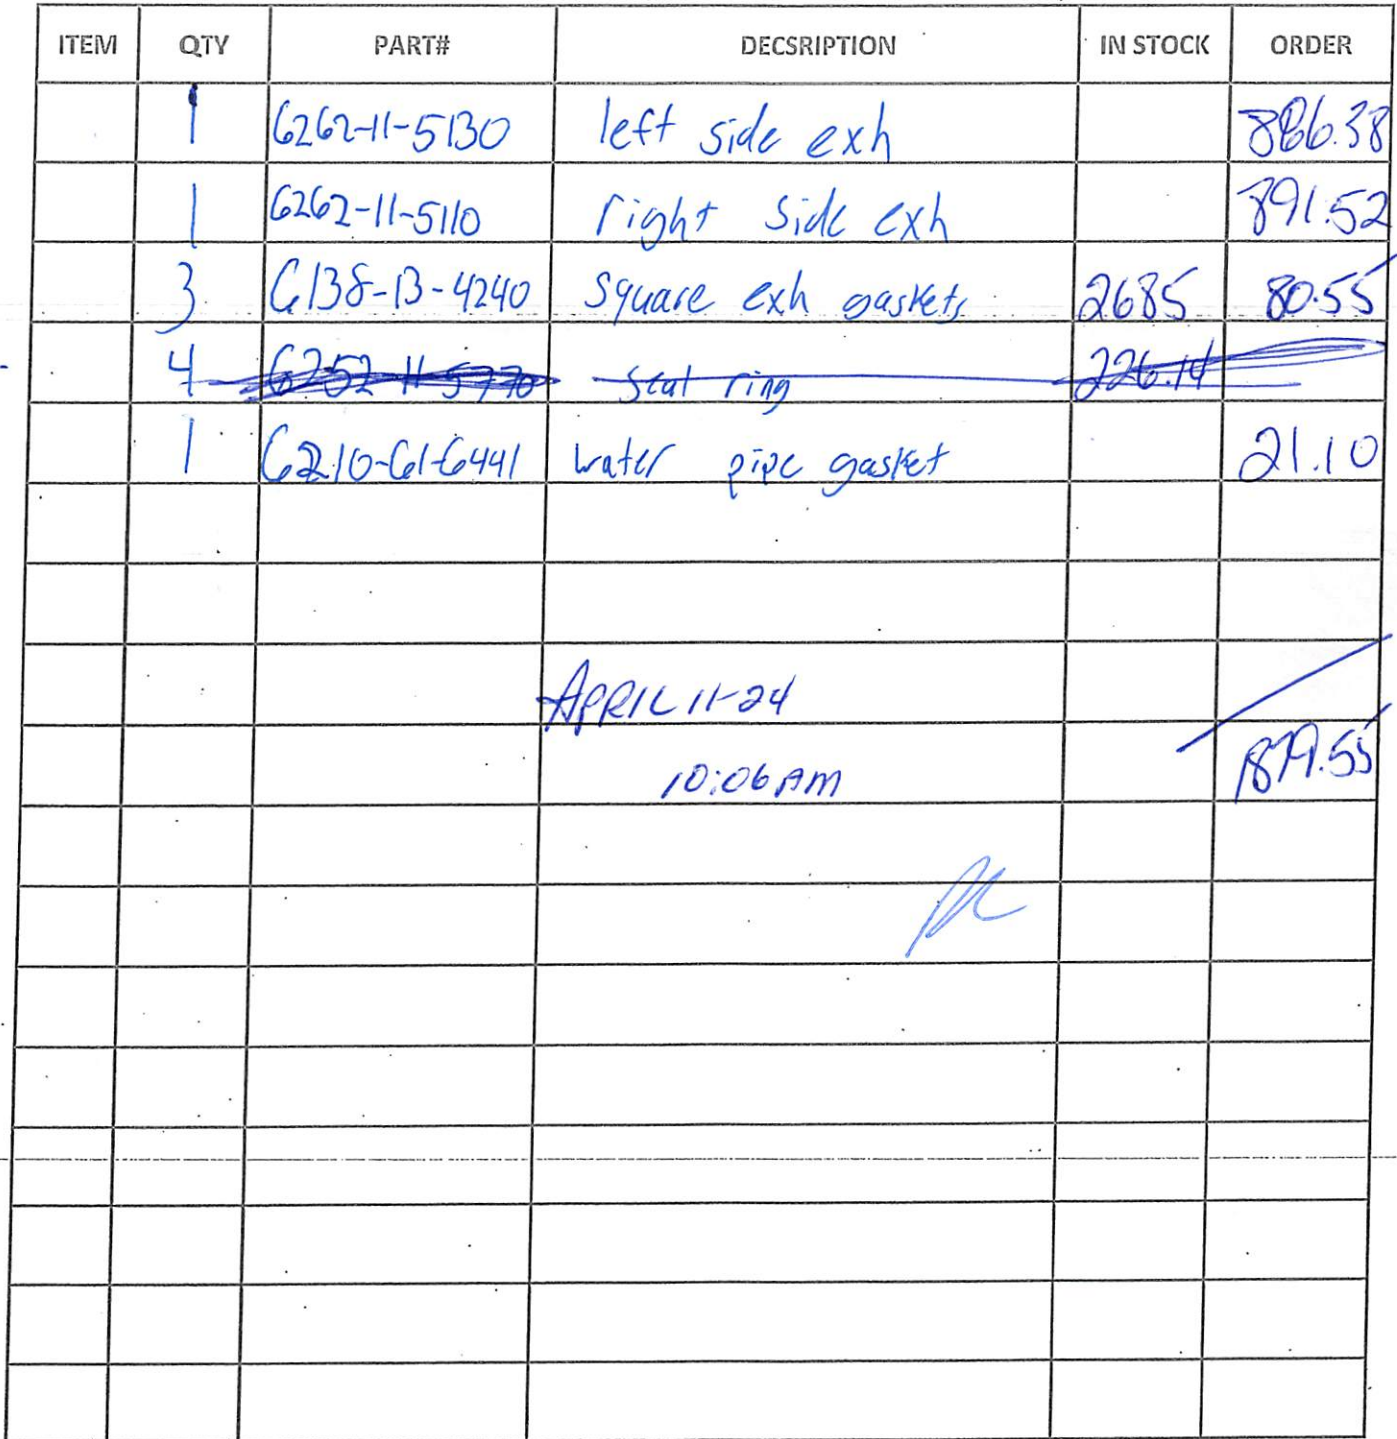 ITEM QTY PART# DECSRIPTION IN STOCK ORDER
1 6262-11-5130 left side exh 886.38
1 6262-11-5110 right side exh 891.52
3 6138-13-4240 square exh gaskets 2685 80.55
4 6252-11-5770 seal ring 226.14
1 6210-61-6441 water pipe gasket 21.10
APRIL 11-24
1879.55
10:06 AM